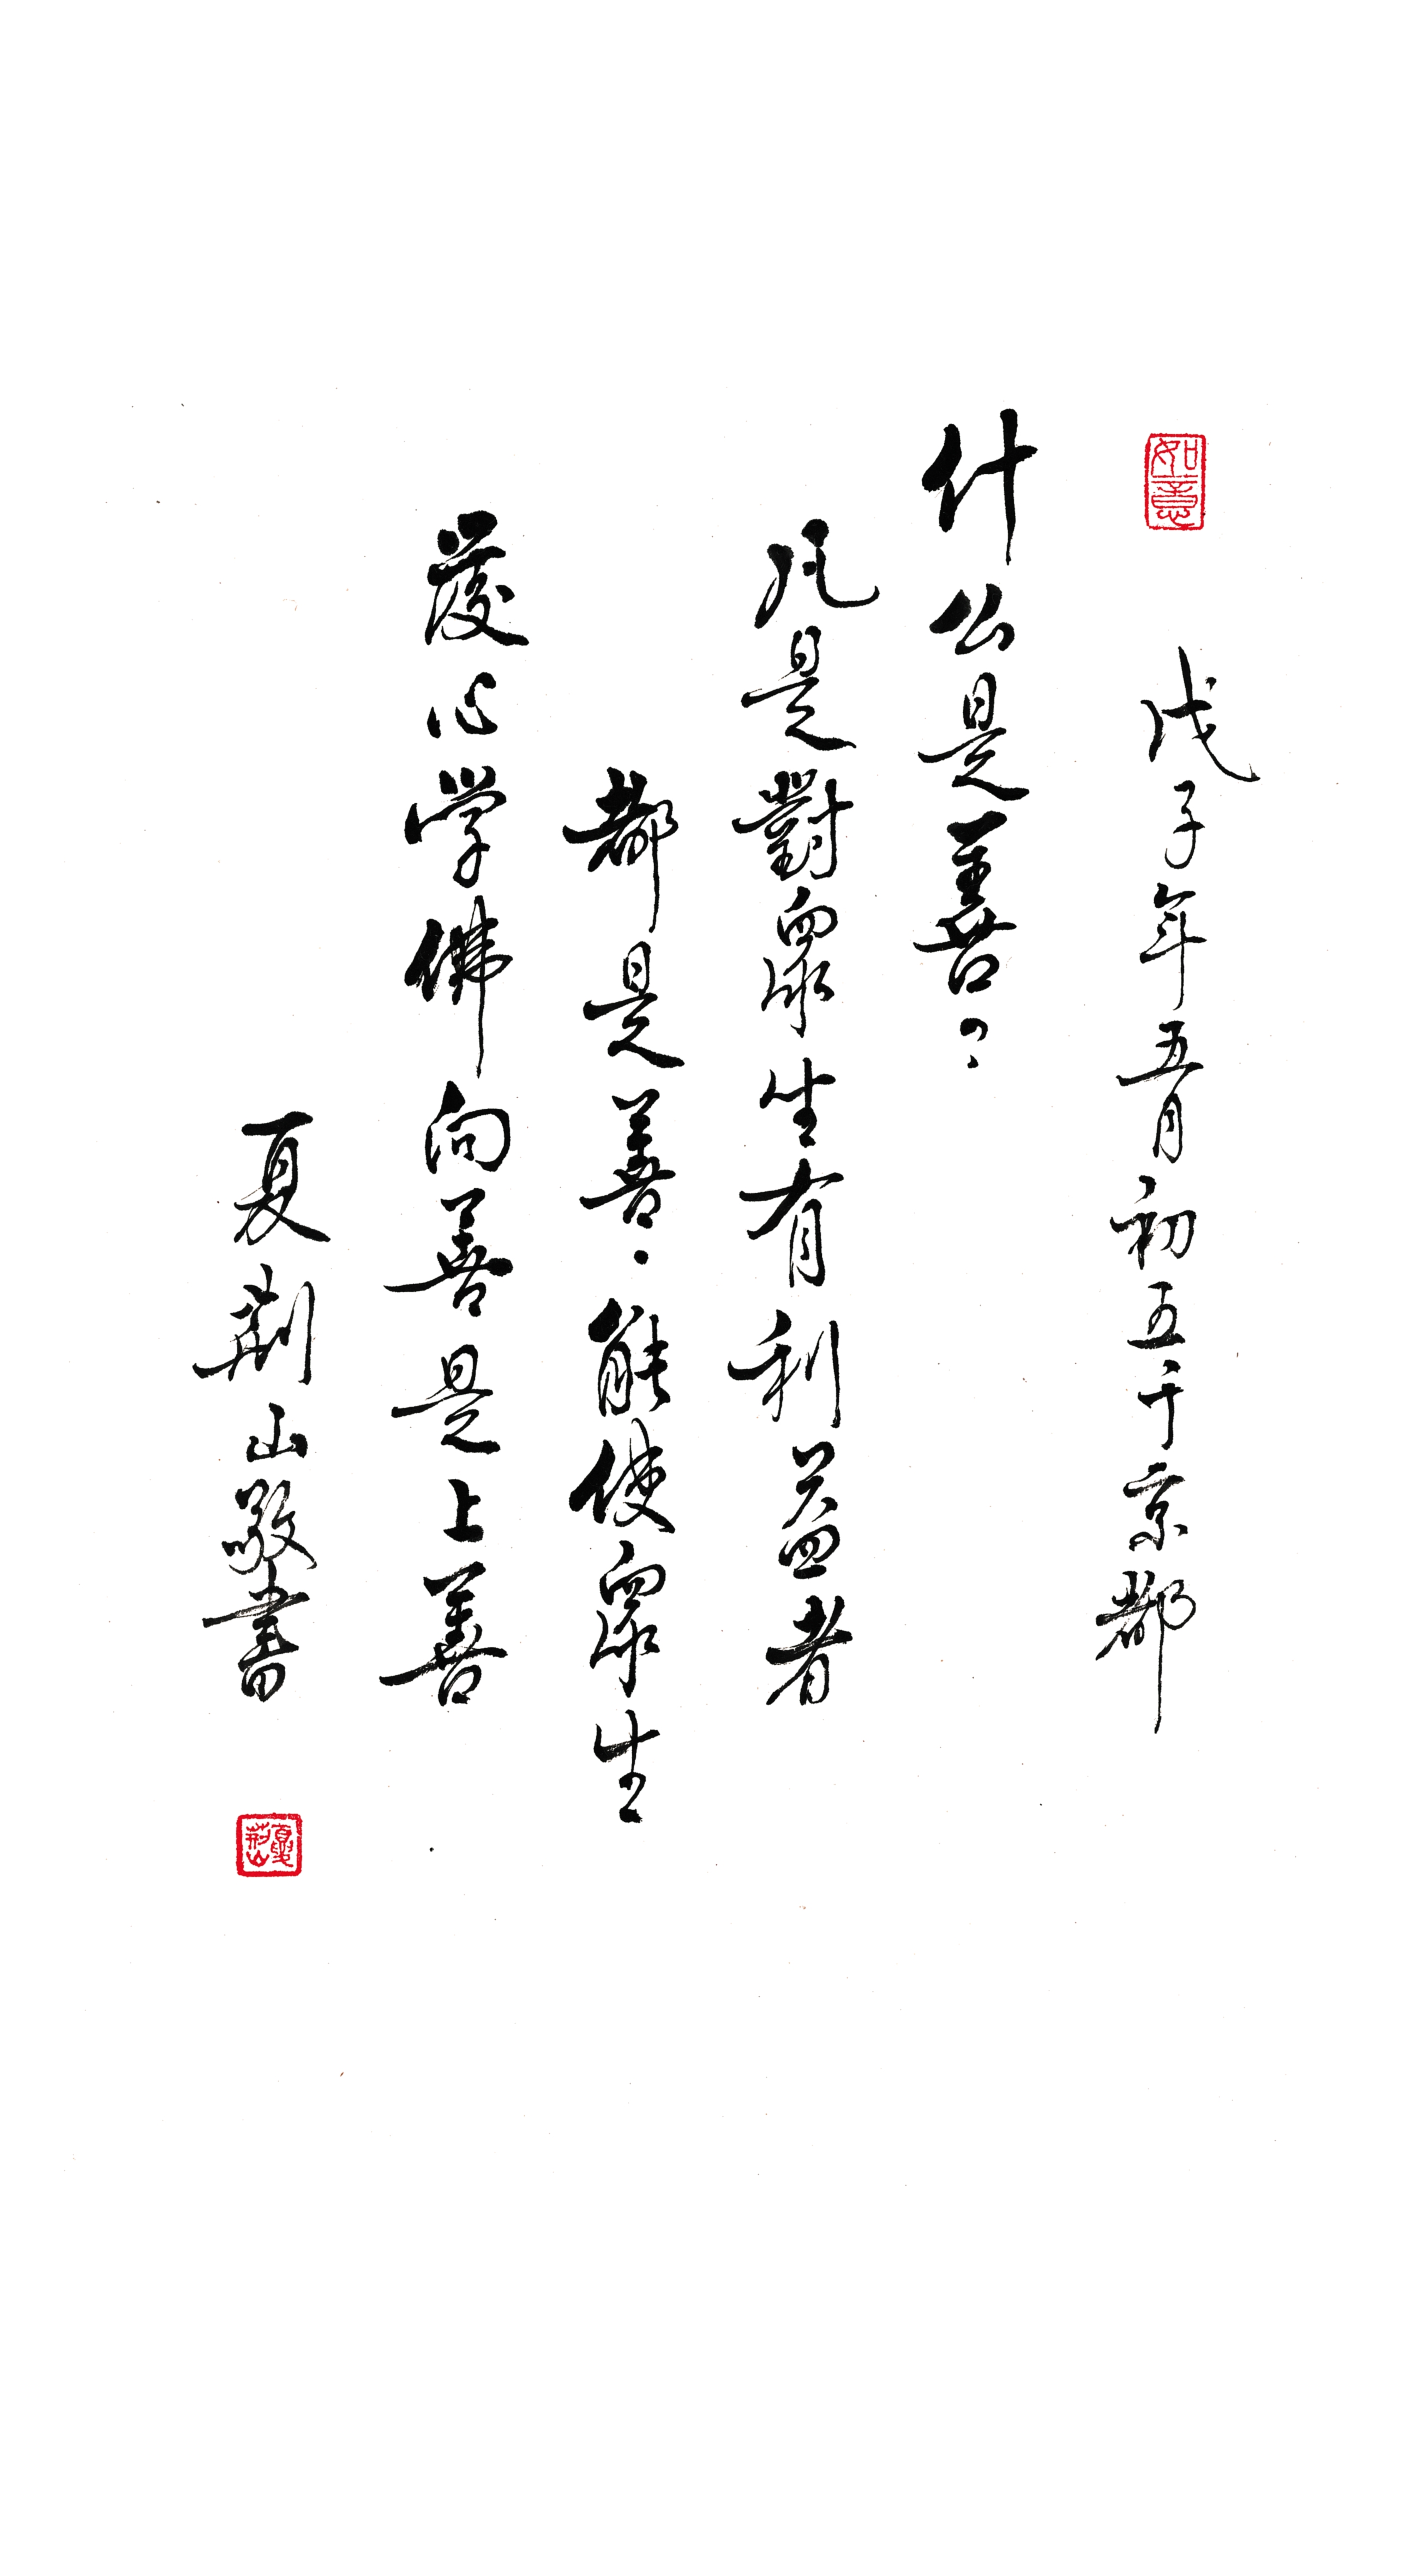 如意
戊子年五月初五于京都
什么是善?
凡是對眾生有利益者
都是善.能使眾生
發心学佛向善是上善
夏荊山敬書
夏荊山